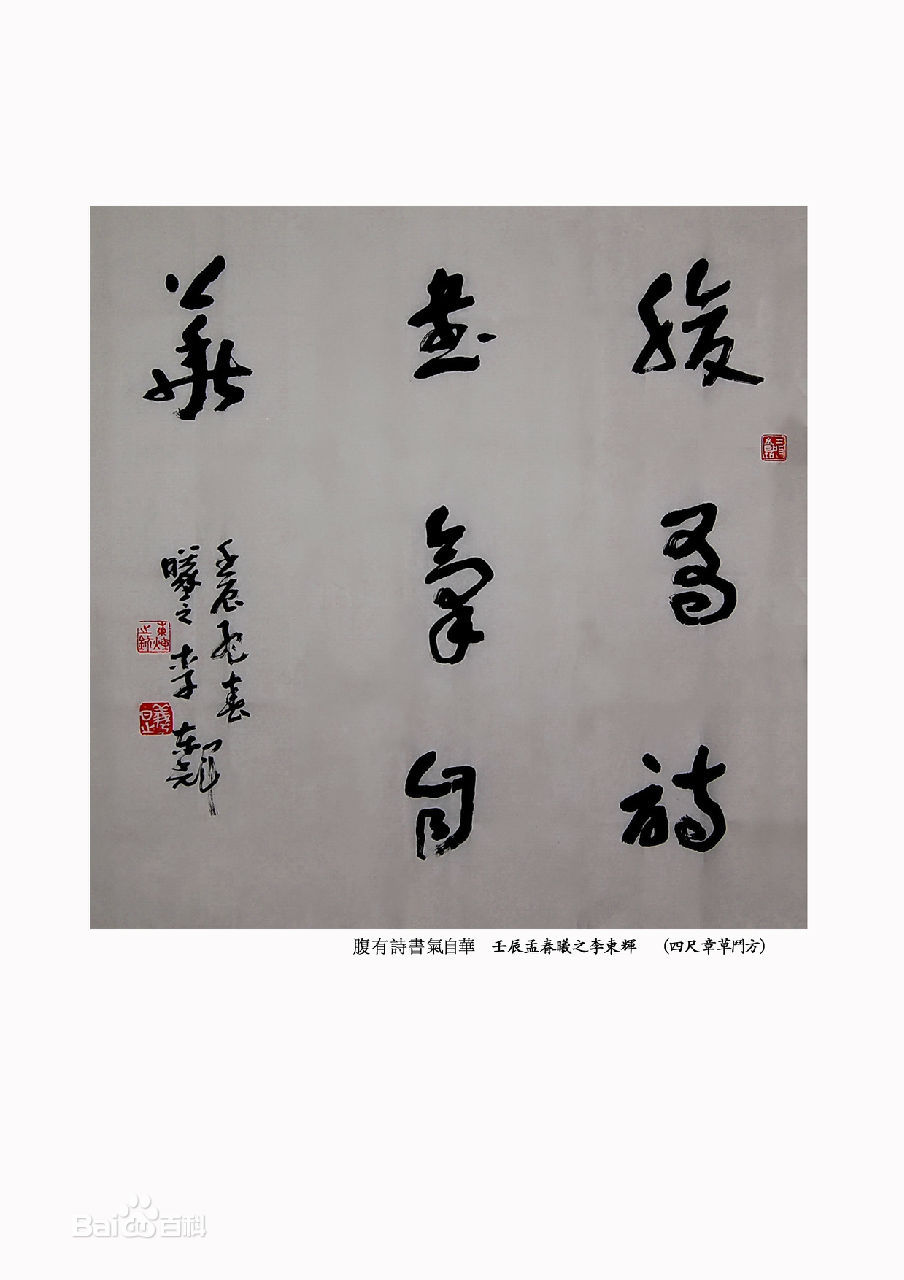 腹有詩
書氣自
華
壬辰孟春
曦之李東輝
東輝之鉨
曦之
腹有詩書氣自華 壬辰孟春曦之李東輝 (四尺章草鬥方)
Baidu百科